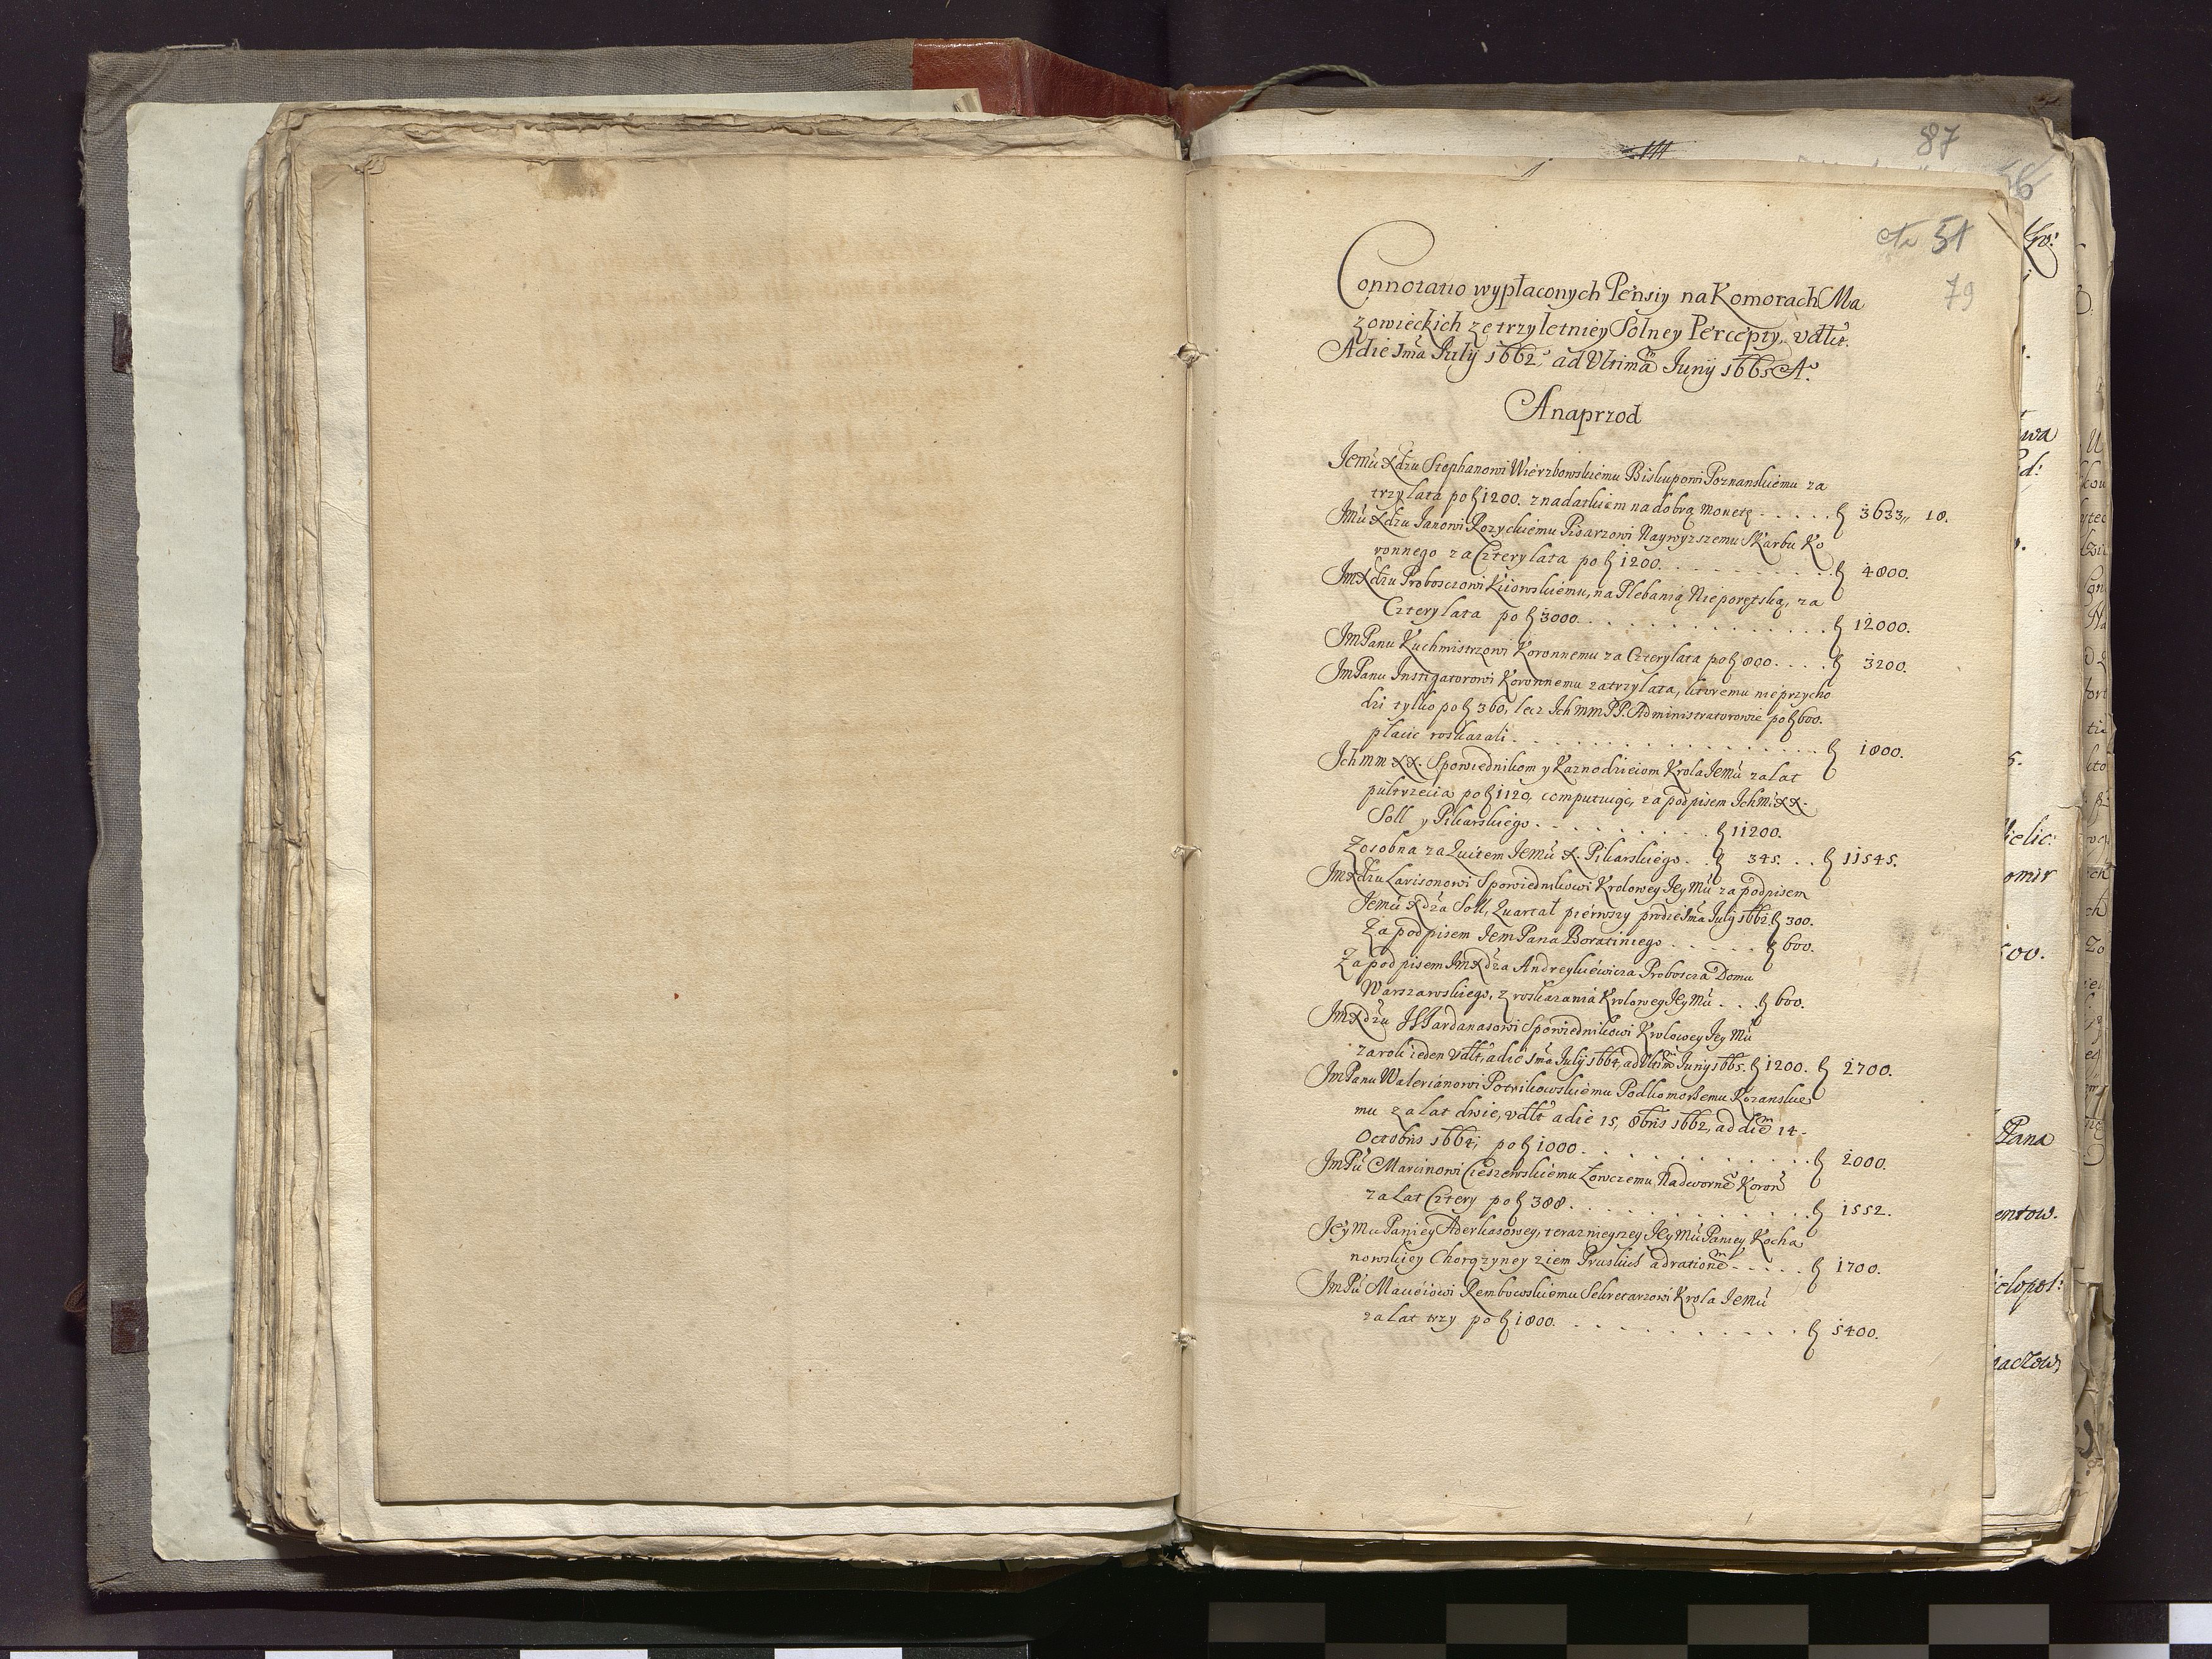 87
56
str 51
79
Connotatio wypłaconych Pensiy na Komorach Ma
zowieckich ze trzyletniey Solney Percepty, vdlt.
A die 1ma July 1662, ad Vltimam Iunij 1665 Ao.
A naprzod
Iemu Xdzu Stephanowi Wierzbowskiemu Biskupowi Poznanskiemu za
trzy lata po fl 1200. z nadatkiem na dobrą monetę . . . . . fl 3633,, 18.
Imu Xdzu Ianowi Rozyckiemu Pisarzowi Naywyzszemu Skarbu Ko
ronnego za Cztery lata po fl 1200. . . . . . . . . . fl 4800.
Im Xdzu Proboszczowi Kiiowskiemu, na Plebanią Nieporętską, za
Cztery lata po fl 3000. . . . . . . . . . . . . fl 12000.
Im Panu Kuchmistrzowi Koronnemu za Cztery lata po fl 800. . . . . fl 3200.
Im Panu Instigatorowi Koronnemu za trzy lata, ktoremu nie przycho
dzi tylko po fl 360, lecz Ich mm PP. Administratorowie po fl 600.
płacic roskazali . . . . . . . . . . . . . . . . . fl 1800.
Ich mm XX. Spowiednikom y Kaznodzieiom Krola Iemu za lat
pułtrzecia po fl 1120, computuiąc, za podpisem Ich M XX.
Soll y Pikarskiego . . . . . . . . . . fl 11200.
Zosobna za Quitem Iemu X. Pikarskiego . . fl 345. . . fl 11545.
Im Xdzu Larisonowi Spowiednikowi Krolowey Iey Mu za podpisem
Iemu Xdza Soll, Quartał pierwszy pro die 1ma Julij 1662 fl 300.
Za podpisem Iem Pana Boratiniego . . . . . . fl 600.
Za podpisem Im Xdza Andreykiewicza Proboscza Domu
Warszawskiego, z roskazania Krolowey Iey Mu . . fl 600.
Im Xdzu Jardanasowi Spowiednikowi Krolowey Iey Mu
za rok ieden vdlt, a die 1ma Julij 1664, ad Vltimam Iunij 1665. fl 1200. fl 2700.
Im Panu Waleriánowi Potrikowskiemu Podkomorzemu Rozanskie
mu za lat dwie, vdlt a die 15, 8bris 1662, ad diem 14
Octobris 1664, po fl 1000 . . . . . . . . . . . fl 2000.
Im Pu Marcinowi Cieszewskiemu Łowczemu Nadworne Koron
za Lat Cztery po fl 388. . . . . . . . . . . . fl 1552.
Iey Mu Paniey Aderkasowey, teraznieyszey Iey Mu Paniey Kocha
nowskiey Chorązyney ziem Pruskich ad rationem . . . . . fl 1700.
Im Pu Macieiowi Rembowskiemu Sekretarzowi Krola Iemu
za Lat trzy po fl 1800. . . . . . . . . . . fl 5400.